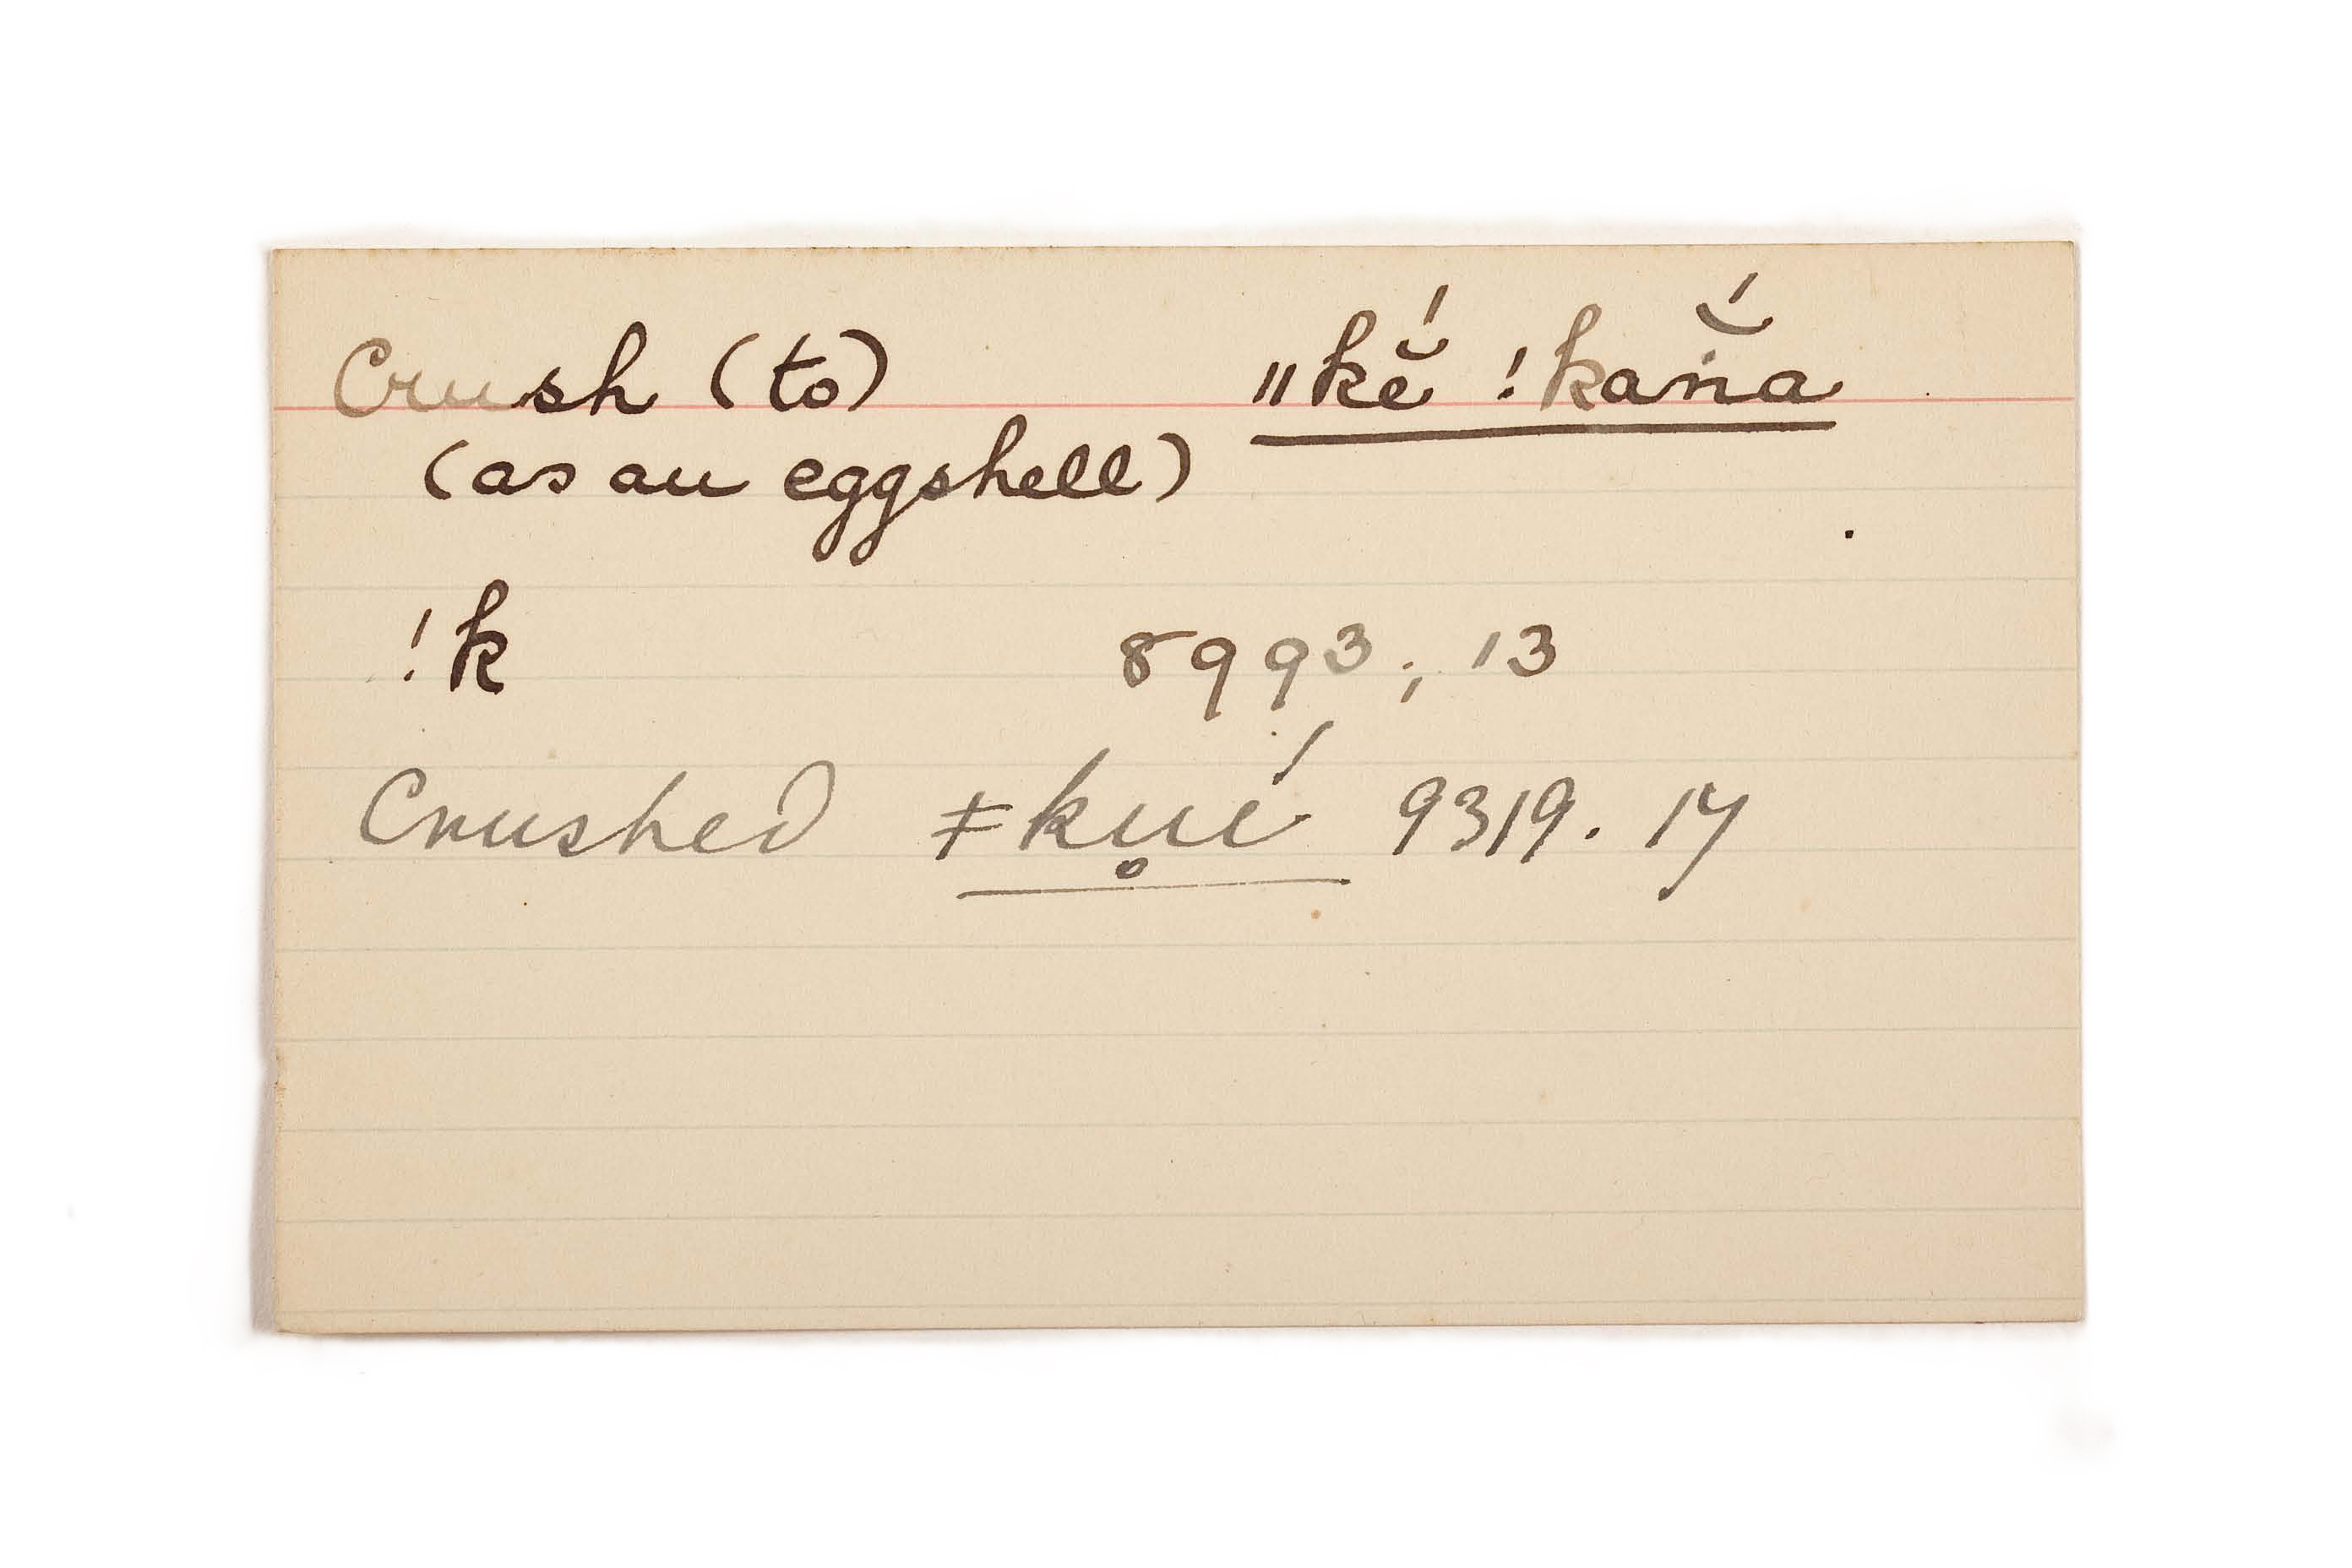 Crush (to) ǁkĕ́ !kaṅắ
(as an eggshell)
!k 8993; 13
Crushed ǂku̥é 9319. 17